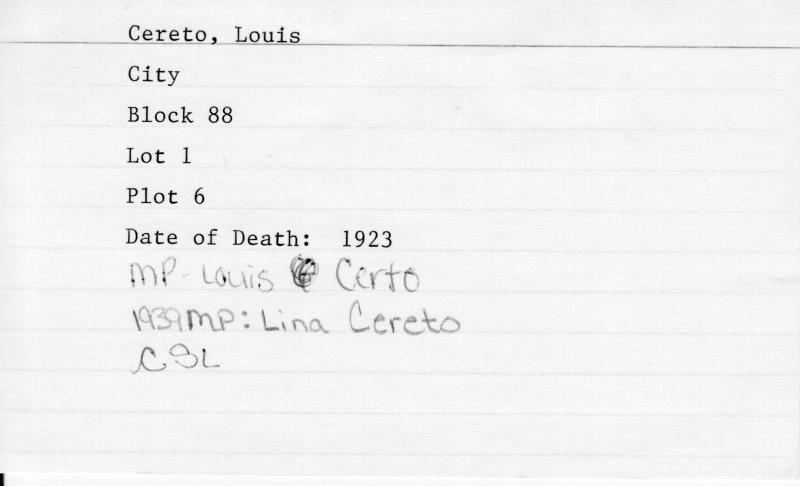 Cereto, Louis
City
Block 88
Lot 1
Plot 6
Date of Death: 1923
MP- Louis Certo
1939MP: Lina Cereto
CSL